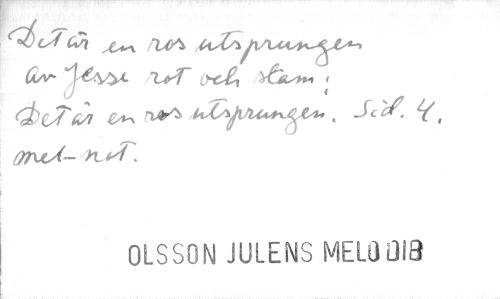 Det är en ros utsprungen
av Jesse rot och stam:
Det är en ros utsprungen. Sid. 4.
mel-not.
OLSSON JULENS MELODIB